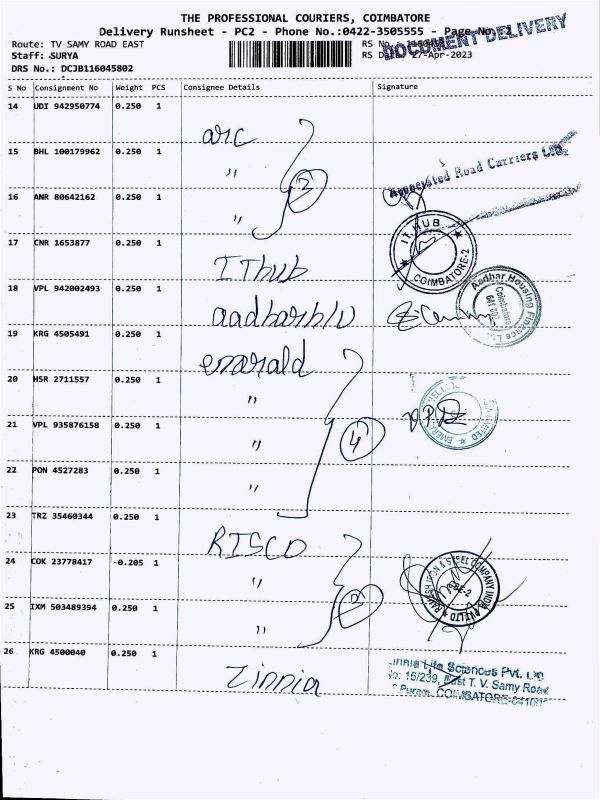 THE PROFESSIONAL COURIERS, COIMBATORE
Delivery Runsheet - PC2 - Phone No.:0422-3505555 - Page No.
DOCUMENT DELIVERY
Route: TV SAMY ROAD EAST
RS No.:
Staff: SURYA
RS Date: 27-Apr-2023
DRS No.: DCJB116045802
S No Consignment No Weight PCS Consignee Details Signature
14 UDI 942950774 0.250 1
arc
15 BHL 100179962 0.250 1
Associated Road Carriers Ltd.
" 3
16 ANR 80642162 0.250 1
"
IT HUB
COIMBATORE-2
17 CNR 1653877 0.250 1
IThub
18 VPL 942002493 0.250 1
aadharhlv
Aadhar Housing Finance Ltd.
Coimbatore
641 002
19 KRG 4505491 0.250 1
emerald
20 HSR 2711557 0.250 1
"
21 VPL 935876158 0.250 1
" 4
LIMITED
22 PON 4527283 0.250 1
"
23 TRZ 35460344 0.250 1
RISCO
24 COK 23778417 -0.205 1
"
IRON & STEEL COMPANY INDIA
25 IXM 503489394 0.250 1
" 3
26 KRG 4500040 0.250 1
Zinnia
Life Sciences Pvt. Ltd
No: 16/239, East T. V. Samy Road
Puram, COIMBATORE-